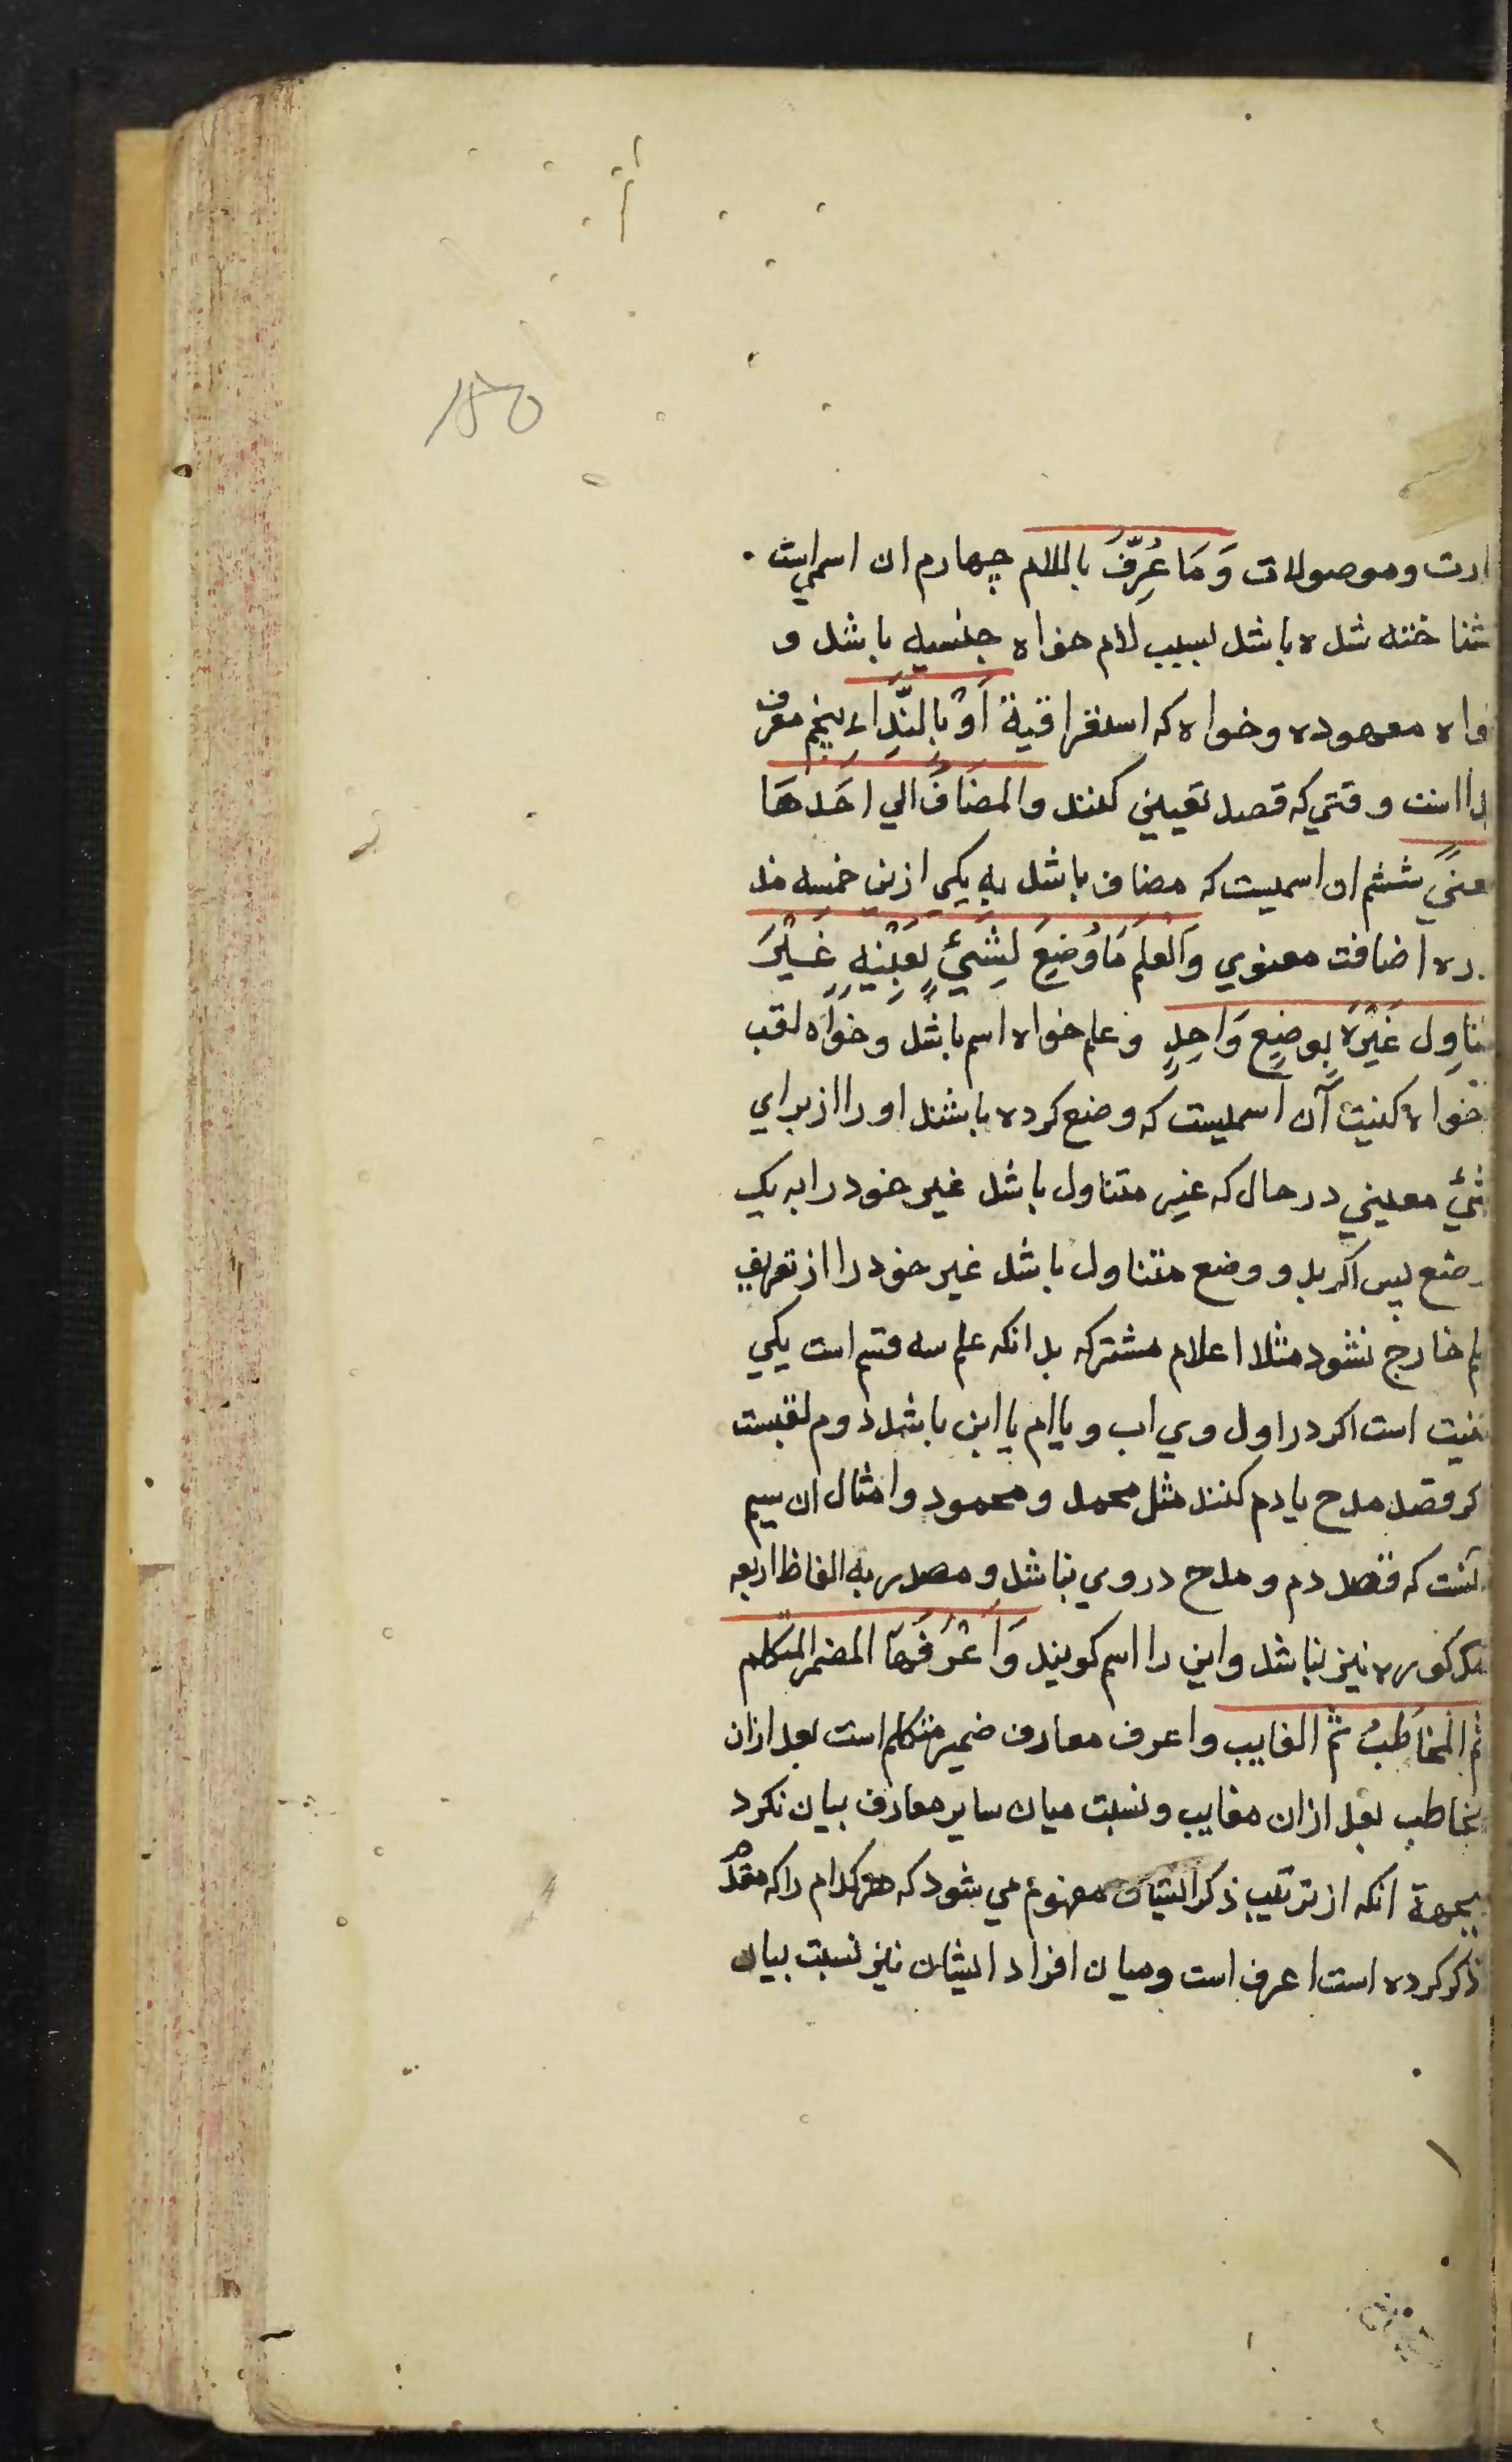 ۱۵۰
ارت وموصولات وَمَا عُرِّفَ باللام چهارم ان اسمیست
شناخته شده باشد لسبب لام خواه جنسیه باشد و
واه معهوده وخواه که استغراقیة اَوْ بِالنِّدَاءِ پنجم معرف
دا است وقتي که قصد تعیین کنند والمضَافُ الي احَدهَا
معنيً ششم ان اسمیست که مضاف باشد به یکي ازین خمسه مذ
ره اضافت معنوي وَالعلَم مَا وُضِعَ لِشَيْئٍ بِعَيْنِهِ غَيْرَ
متناوِل غَيْرَهُ بِوضِعٍ وَاحِدٍ وعلم خواه اسم باشد وخواه لقب
خواه کنیت آن اسمیست که وضع کرده باشند او را از براي
شيئ معیني در حال که غیر متناول باشد غیر خود را به یک
وضع پس اکر بدو وضع متناول باشد غیر خود را از تعریف
علم خارج نشود مثلا اعلام مشترکه بدانکه علم سه قسم است یکي
کنیت است اکر در اول وي اب و یا ام یا ابن باشد دوم لقبست
کر قصد مدح یا دم کنند مثل محمد و محمود وامثال ان سیم
آنست که قصد دم و مدح در وي نباشد و مصدر به الفاظ اربعه
مذکوره نیز نباشد واین را اسم کویند وَاَعْرَفُهَا المضمر المتکلم
ثم المُخاطَبُ ثم الغایب واعرف معارف ضمیر متکلم است بعد ازان
مخاطب بعد ازان مغایب ونسبت میان سایر معارف بیان نکرد
بجهة انکه از ترتیب ذکر ایشان مفهوم مي شود که هر کدام را که مقدم
ذکر کرده است اعرف است ومیان افراد ایشان نیز نسبت بیان